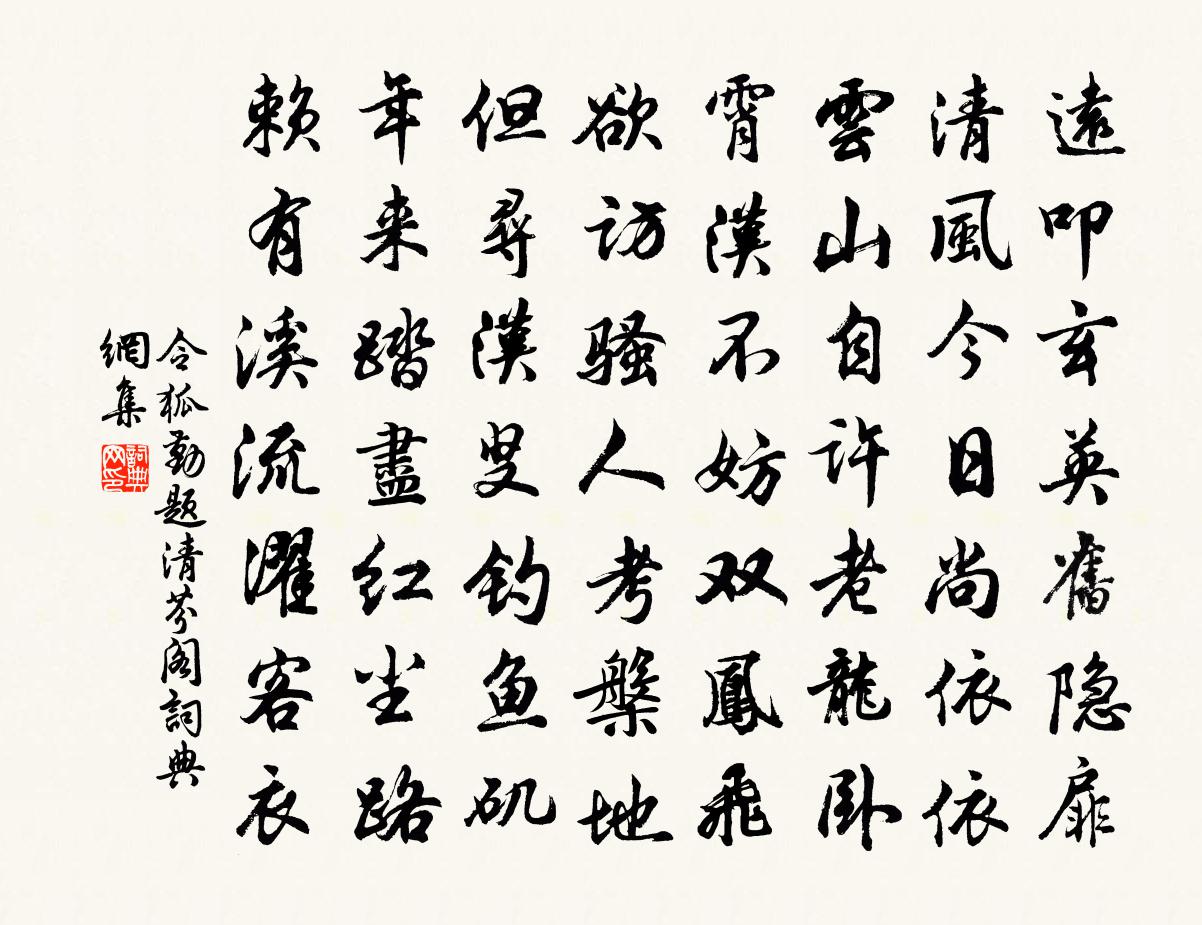 遠叩玄英舊隐扉
清風今日尚依依
雲山自许老龍卧
霄漢不妨双鳳飛
欲訪骚人考槃地
但尋漢叟钓鱼矶
年来踏盡红尘路
赖有溪流濯客衣
令狐勤题清芬阁詞典
網集
詞典网印